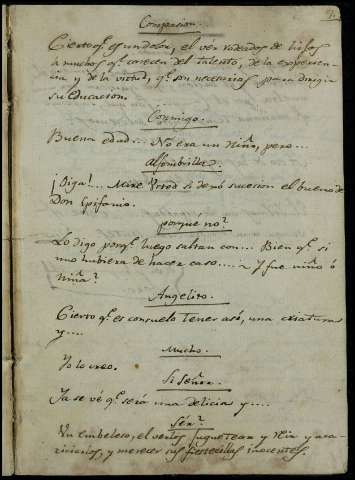 Compasion.
Cierto q.e es un dolor, el vér rodeados de hijos
á muchos q.e carecen del talento, de la experien-
cia y de la virtud, q.e son necesarias para dirigir
su educacion.
Conmigo.
Buena edad... No era un Niño, pero...
Alfombrilla.
¡Oiga!... Mire Usted si demó sucesion el bueno de
Don Epifanio.
porqué no?
Lo digo porq.e luego saltan con.... Bien q.e si
uno hubiera de hacer caso.... Y fue niño ó
niña?
Angelito.
Cierto q.e es consuelo tener asi, una criatura
y....
Mucho.
Yo lo creo.
Si Señor.
Ya se vé q.e será una delicia y....
Sér?
Un embeleso, el verlos juguetear y reir y aca-
riciarlos, y merecer sus fiestecillas inocentes.